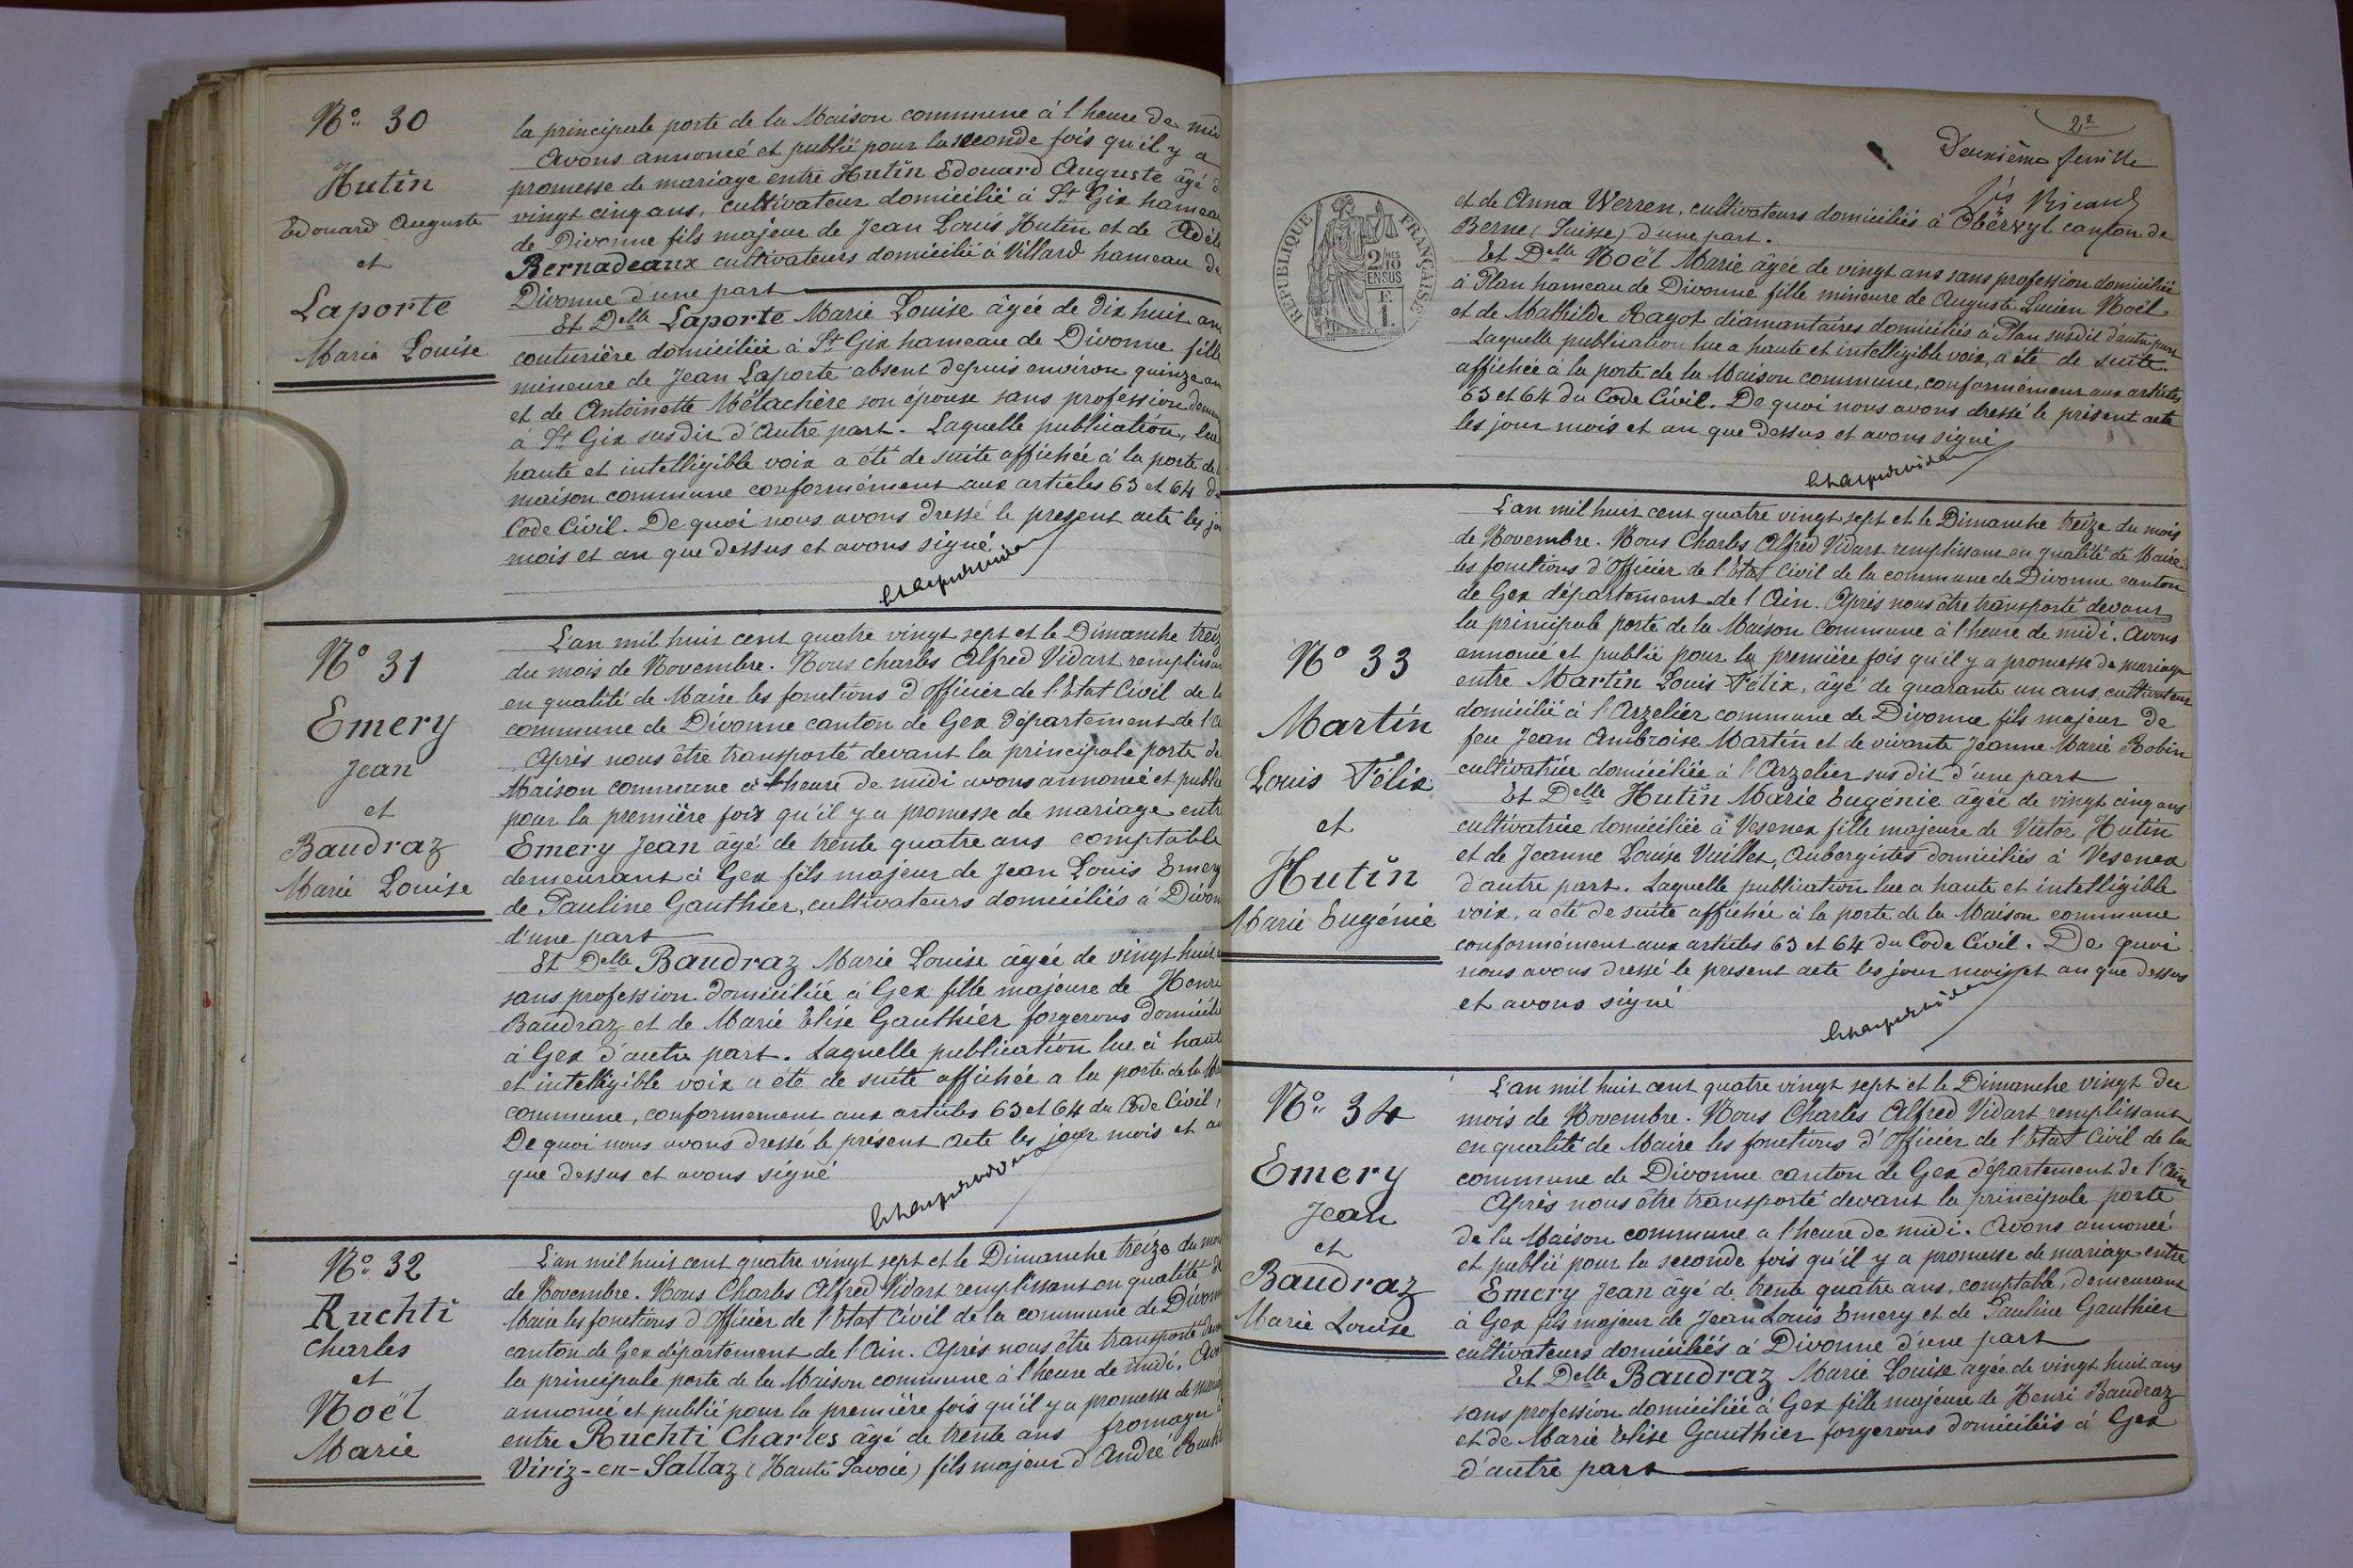 N° 30
Hutin
Edouard Auguste
et
Laporte
Marie Louise
la principale porte de la Maison commune à l'heure de mid
Avons annoncé et publié pour la seconde fois qu'il y a
promesse de mariage entre Hutin Edouard Auguste âgé d
vingt cinq ans, cultivateur domicilié à St Gix hameau
de Divonne fils majeur de Jean Louis Hutin et de Adèle
Bernadeaux cultivateurs domicilié à Villard hameau de
Divonne d'une part
Et Delle Laporte Marie Louise âgée de dix huit an
couturière domiciliée à St Gix hameau de Divonne fille
mineure de Jean Laporte absent depuis environ quinze an
et de Antoinette Métachère son épouse sans profession
à St Gix susdit d'autre part. Laquelle publication, lue
haute et intelligible voix a été de suite affichée à la porte de
maison commune conformément aux articles 63 et 64 d
Code Civil. De quoi nous avons dressé le present acte les jou
mois et an que dessus et avons signé
N° 31
Emery
Jean
et
Baudraz
Marie Louise
L'an mil huit cent quatre vingt sept et le Dimanche treiz
du mois de Novembre. Nous charles Alfred Vidart remplissan
en qualité de Maire les fonctions d'officier de l'Etat Civil de la
commune de Divonne canton de Gex département de l'A
Après nous être transporté devant la principale porte de
Maison commune à l'heure de midi avons annoncé et publié
pour la première fois qu'il y a promesse de mariage entr
Emery Jean âgé de trente quatre ans comptable
demeurant à Gex fils majeur de Jean Louis Emery
de Pauline Gauthier, cultivateurs domiciliés à Divon
d'une part
Et Delle Baudraz Marie Louise âgée de vingt huit a
sans profession domiciliée à Gex fille majeure de Henri
Baudraz et de Marie Elise Gauthier forgerons domicilié
à Gex d'autre part. Laquelle publication lue à haute
et intelligible voix a été de suite affichée a la porte de la Ma
commune, conformement aux articles 63 et 64 du Code Civil,
De quoi nous avons dressé le présent acte les jour mois et an
que dessus et avons signé
N° 32
Ruchti
Charles
et
Noël
Marie
L'an mil huit cent quatre vingt sept et le Dimanche treize du moi
de Novembre. Nous Charles Alfred Vidart remplissant en qualité de
Maire les fonctions d'Officier de l'Etat Civil de la commune de Divonn
canton de Gex département de l'Ain. Après nous être transporté devan
la principale porte de la Maison commune à l'heure de midi. Avo
annoncé et publié pour la première fois qu'il y a promesse de mariag
entre Ruchti Charles âgé de trente ans fromager
Viriz-en-Sallaz (Haute Savoie) fils majeur d'André Rucht
2e
Deuxième feuille
RÉPUBLIQUE FRANÇAISE
et de Anna Werren, cultivateurs domiciliés à Oberwyl canton de
Berne (Suisse) d'une part.
Et Delle Noël Marie âgée de vingt ans sans profession domiciliée
à Plan hameau de Divonne fille mineure de Auguste Lucien Noël
et de Mathilde Ragot diamantaires domiciliés à Plan susdit d'autre part
Laquelle publication lue a haute et intelligible voix, a été de suite
affichée à la porte de la Maison commune, conformément aux articles
63 et 64 du Code Civil. De quoi nous avons dressé le présent acte
les jour mois et an que dessus et avons signé
N° 33
Martin
Louis Félix
et
Hutin
Marie Eugénie
L'an mil huit cent quatre vingt sept et le Dimanche treize du mois
de Novembre. Nous Charles Alfred Vidart remplissant en qualité de Maire
les fonctions d'Officier de l'Etat Civil de la commune de Divonne canton
de Gex département de l'Ain. Après nous être transporté devant
la principale porte de la Maison Commune à l'heure de midi. Avons
annoncé et publié pour la première fois qu'il y a promesse de mariage
entre Martin Louis Félix, âgé de quarante un ans, cultivateur
domicilié à l'Arzelier commune de Divonne fils majeur de
feu Jean Ambroise Martin et de vivante Jeanne Marie Robin
cultivatrice domiciliée à l'Arzelier sus dit d'une part
Et Delle Hutin Marie Eugénie âgée de vingt cinq ans
cultivatrice domiciliée à Vesenex fille majeure de Victor Hutin
et de Jeanne Louise Vuillet, Aubergistes domiciliés à Vesenex
d'autre part. Laquelle publication lue a haute et intelligible
voix, a été de suite affichée à la porte de la Maison commune
conformément aux articles 63 et 64 du Code Civil. De quoi
nous avons dressé le present acte les jour mois et an que dessus
et avons signé
N° 34
Emery
Jean
et
Baudraz
Marie Louise
L'an mil huit cent quatre vingt sept et le Dimanche vingt du
mois de Novembre. Nous Charles Alfred Vidart remplissant
en qualité de Maire les fonctions d'Officier de l'Etat Civil de la
commune de Divonne canton de Gex département de l'Ain
Après nous être transporté devant la principale porte
de la Maison commune a l'heure de midi. Avons annoncé
et publié pour la seconde fois qu'il y a promesse de mariage entre
Emery Jean âgé de trente quatre ans, comptable, demeurant
à Gex fils majeur de Jean Louis Emery et de Pauline Gauthier
cultivateurs domiciliés à Divonne d'une part
Et Delle Baudraz Marie Louise agée de vingt huit ans
sans profession domiciliée à Gex fille majeure de Henri Baudraz
et de Marie Elise Gauthier forgerons domiciliés à Gex
d'autre part